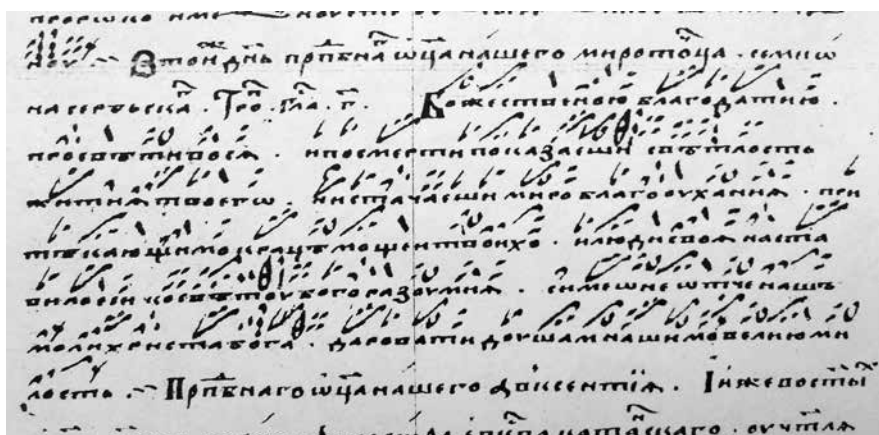 В тои днь прпбна ѿца нашего миротоца . семиѡ
на серпьска . Тро . гла . п . Божественою благодатию .
просвѣтивося . и посмерти показаеши свѣтлость
житиѧ твоегѡ . и источаеши миро благоуханиѧ . при
тѣкающимо крацѣ мощеи твоихо . и люди своѧ наста
вилоеси ко свѣту богоразумиѧ . симеѡне ѡтче нашъ
моли христа бога . даровати душам нашимо велию ми
лость . Прпбнаго ѿца нашего аѵксентїѧ . Іижевосты